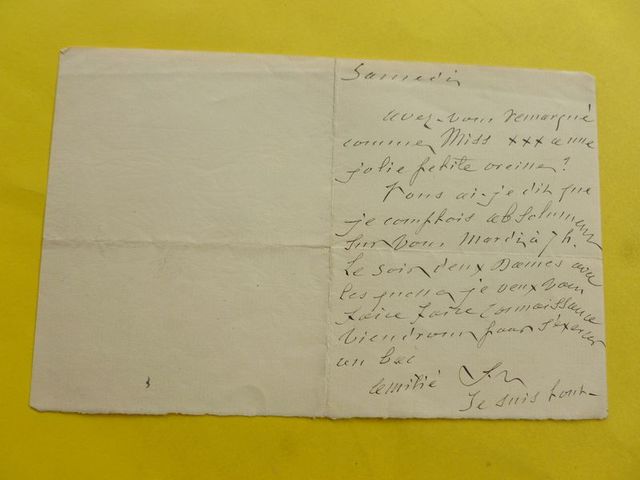 Samedi
avez-vous remarqué
comme Miss xxx a une
jolie petite oreille?
Vous ai-je dit que
je comptois absolument
sur vous Mardi à 7 h.
Le soir deux Dames avec
lesquelles je veux vous
faire faire connaissance
viendront pour s'exercer
un bac
amitié
Je suis tout-